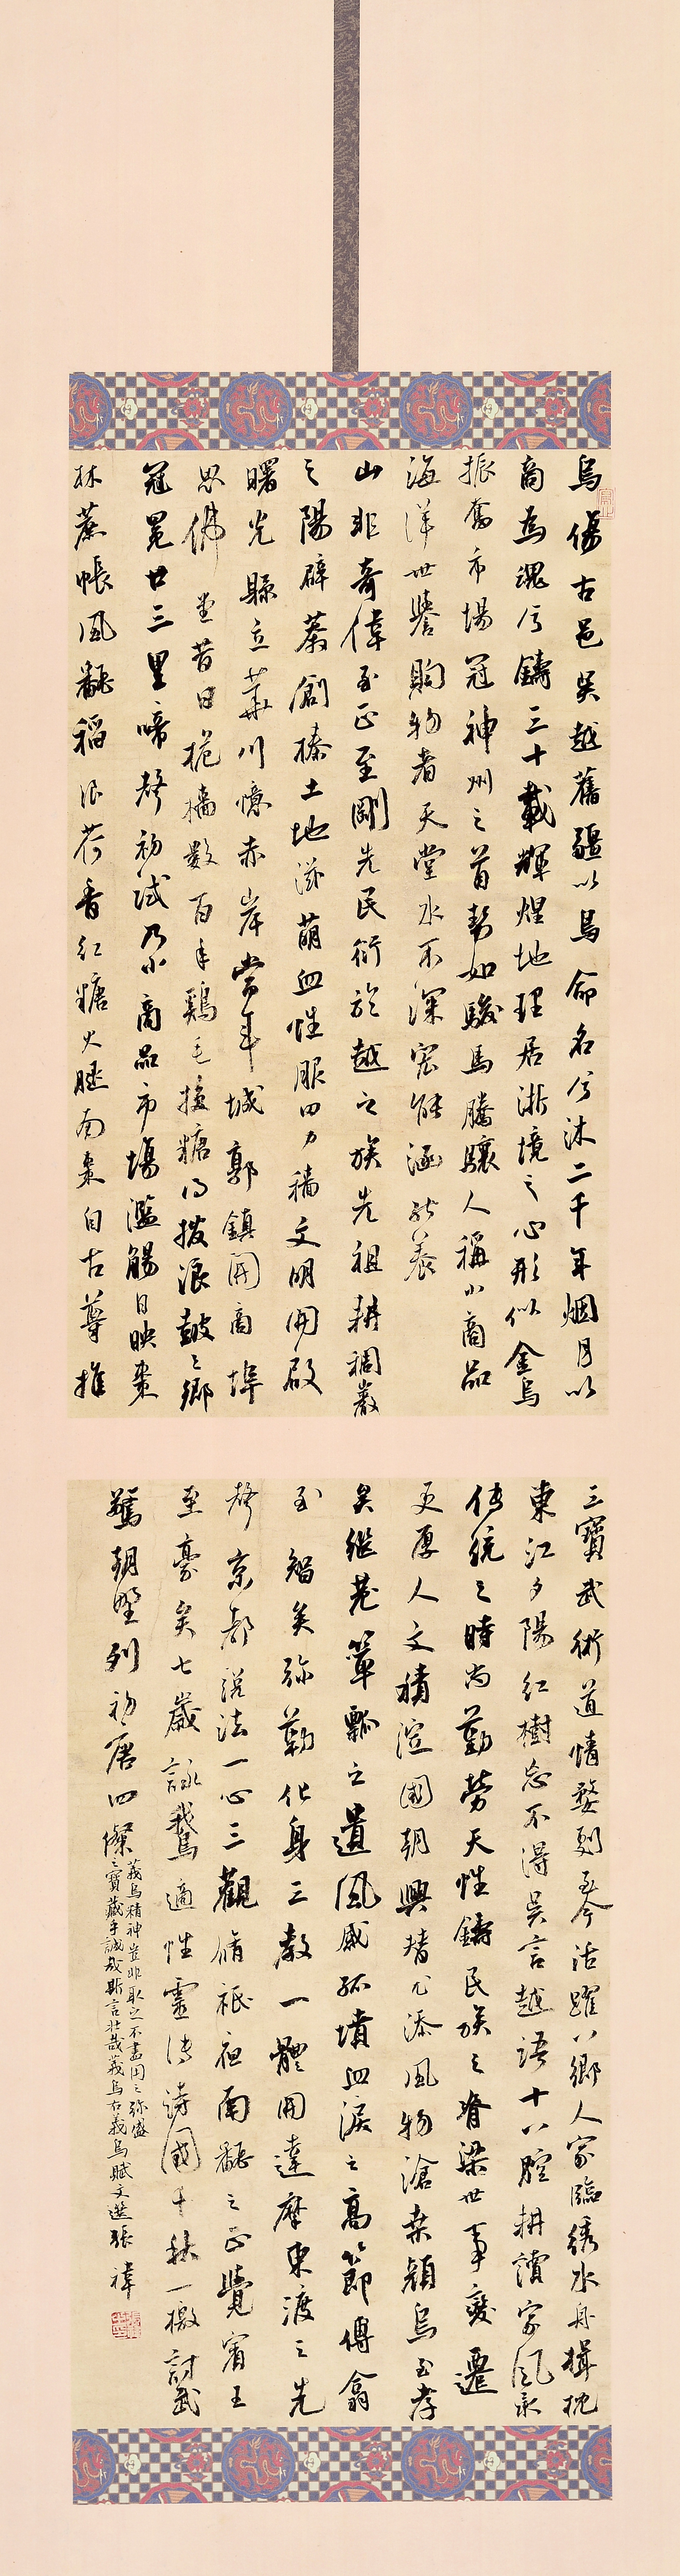 烏傷古邑吳越舊疆以烏命名兮沐二千年烟月以
商為魂兮鑄三十載輝煌地理居浙境之心形似金烏
振奮市場冠神州之首勢如駿馬騰驤人稱小商品
海洋世譽購物者天堂水不深宏能涵能養
山非奇偉至正至剛先民衍於越之族先祖耕稠巖
之陽辟萊創榛土地滋萠血性服田力穡文明開啟
曙光縣立華川憶赤岸當年城郭鎮開商埠
思佛堂昔日桅檣數百年雞毛換糖乃撥浪鼓之鄉
冠冕廿三里啼聲初試乃小商品市場濫觴日映棗
林蔗帳風翻稻浪荷香紅糖火腿南棗自古尊推
三寶武術道情婺劇至今活躍八鄉人家臨綉水舟楫枕
東江夕陽紅樹忘不得吳言越語十八腔耕讀家風承
傳統之時尚勤勞天性鑄民族之脊梁世事變遷
更厚人文積淀國朝興替尤添風物滄桑顏烏至孝
矣繼茫簞瓢之遺風感孤墳血淚之高節傅翕
至智矣弥勒化身三教一體開達摩東渡之先
聲京都說法一心三觀脩衹桓南翻之正覺賓王
至豪矣七歲詠鵝鳥適性靈傳詩國千秋一檄討武
驚朝野列初唐四傑
義烏精神豈非取之不盡用之弥盛
之寶藏乎誠哉斯言壯哉義烏右義烏賦文選張禕